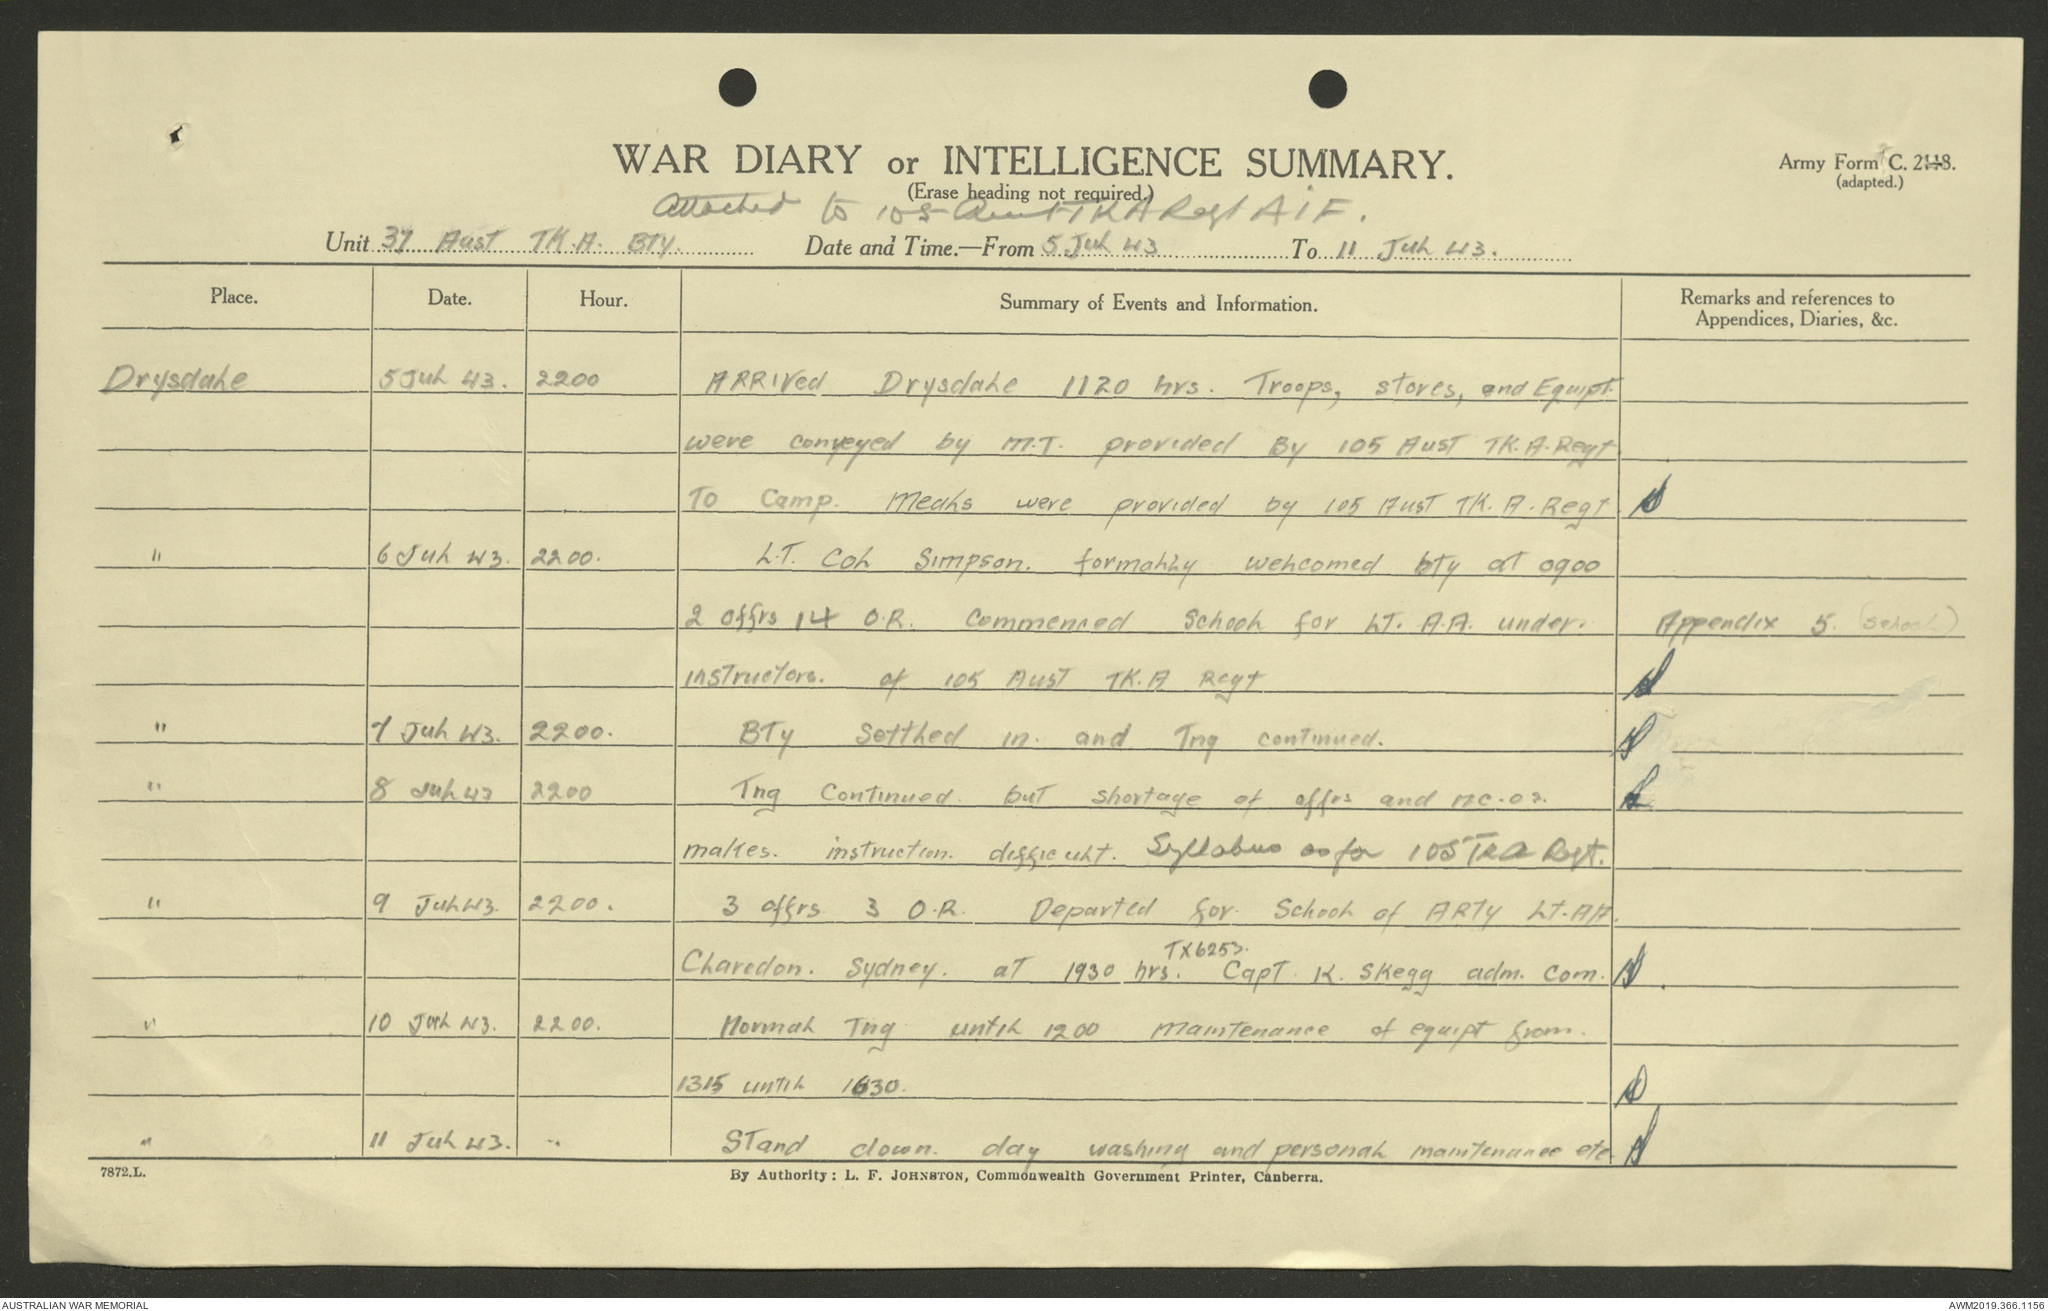 WAR DIARY or INTELLIGENCE SUMMARY.
(Erase heading not required.)
Army Form C. 2118.
(adapted.)
Attached to 105 Aust TKA Regt AIF.
Unit 37 Aust TK.A. BTY. Date and Time.—From 5 Jul 43 To 11 Jul 43.
Place. Date. Hour. Summary of Events and Information. Remarks and references to
Appendices, Diaries, &c.
Drysdale 5 Jul 43. 2200 ARRIVed Drysdale 1120 hrs. Troops, stores, and Equipt.
were conveyed by M.T. provided By 105 Aust TK.A. Regt
To Camp. Meals were provided by 105 Aust TK.A. Regt.
" 6 Jul 43. 2200. LT. Col Simpson. formally welcomed bty at 0900
2 offrs 14 O.R. Commenced School for LT. A.A. under. Appendix 5. (School)
instructors. of 105 Aust TK.A Regt
" 7 Jul 43. 2200. BTy Settled in. and Tng continued.
" 8 Jul 43 2200 Tng Continued. but shortage of offrs and NC.Os.
makes. instruction. difficult. Syllabus as for 105 TKA Regt.
" 9 Jul 43. 2200. 3 offrs 3 O.R. Departed for School of ARTy LT.AA.
TX6253.
Charedon. Sydney. at 1930 hrs. Capt. K. Skegg adm. Com.
" 10 Jul 43. 2200. Normal Tng until 1200 Maintenance of equipt from.
1315 until 1630.
" 11 Jul 43. " Stand down. day washing and personal maintenance etc
7872.L. By Authority: L. F. JOHNSTON, Commonwealth Government Printer, Canberra.
AUSTRALIAN WAR MEMORIAL AWM2019.366.1156